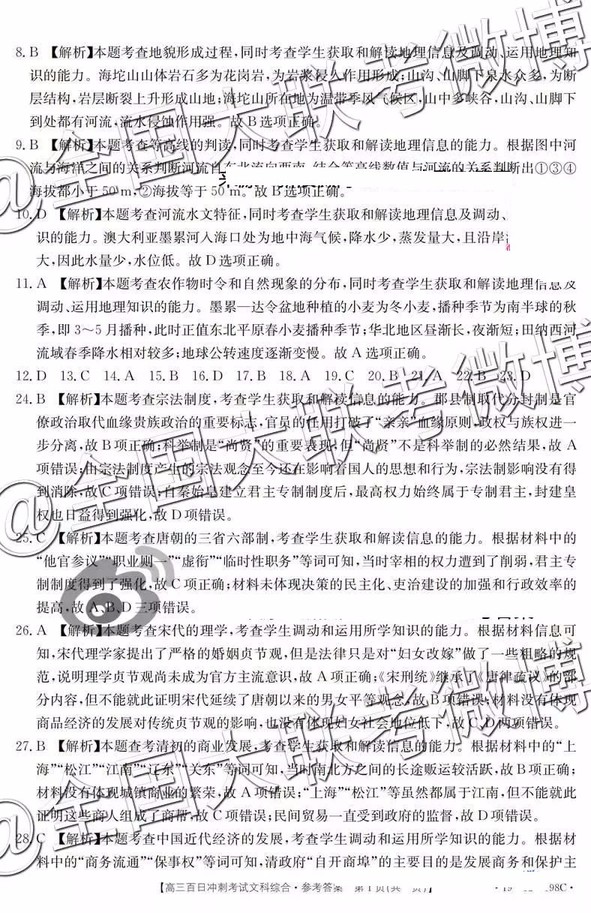 8. B 【解析】本题考查地貌形成过程，同时考查学生获取和解读地理信息及调动、运用地理知
识的能力。海坨山山体岩石多为花岗岩，为岩浆侵入作用形成；山沟、山脚下泉水众多，为断
层结构，岩层断裂上升形成山地；海坨山所在地为温带季风气候区，山中多峡谷，山沟、山脚下
到处都有河流，流水侵蚀作用强。故B选项正确。
9. B 【解析】本题考查等高线的判读，同时考查学生获取和解读地理信息的能力。根据图中河
流与海洋之间的关系判断河流自东北流向西南，结合等高线数值与河流的关系判断出①③④
海拔都小于50 m，②海拔等于50 m。故B选项正确。
10. D 【解析】本题考查河流水文特征，同时考查学生获取和解读地理信息及调动、
识的能力。澳大利亚墨累河入海口处为地中海气候，降水少，蒸发量大，且沿岸
大，因此水量少，水位低。故D选项正确。
11. A 【解析】本题考查农作物时令和自然现象的分布，同时考查学生获取和解读地理信息及
调动、运用地理知识的能力。墨累—达令盆地种植的小麦为冬小麦，播种季节为南半球的秋
季，即3～5月播种，此时正值东北平原春小麦播种季节；华北地区昼渐长，夜渐短；田纳西河
流域春季降水相对较多；地球公转速度逐渐变慢。故A选项正确。
12. D 13. C 14. A 15. B 16. D 17. B 18. A 19. C 20. B 21. A 22. B 23. D
24. B 【解析】本题考查宗法制度，考查学生获取和解读信息的能力。郡县制取代分封制是官
僚政治取代血缘贵族政治的重要标志，官员的任用打破了“亲亲”血缘原则，政权与族权进一
步分离，故B项正确；科举制是“尚贤”的重要表现，但“尚贤”不是科举制的必然结果，故A
项错误；由宗法制度产生的宗法观念至今还在影响着国人的思想和行为，宗法制影响没有得
到消除，故C项错误；自秦始皇建立君主专制制度后，最高权力始终属于专制君主，封建皇
权也日益得到强化，故D项错误。
25. C 【解析】本题考查唐朝的三省六部制，考查学生获取和解读信息的能力。根据材料中的
“他官参议”“职业则一”“虚衔”“临时性职务”等词可知，当时宰相的权力遭到了削弱，君主专
制制度得到了强化，故C项正确；材料未体现决策的民主化、吏治建设的加强和行政效率的
提高，故A、B、D三项错误。
26. A 【解析】本题考查宋代的理学，考查学生调动和运用所学知识的能力。根据材料信息可
知，宋代理学家提出了严格的婚姻贞节观，但是法律只是对“妇女改嫁”做了一些粗略的规
范，说明理学贞节观尚未成为官方主流意识，故A项正确；《宋刑统》继承了《唐律疏议》的部
分内容，但不能就此证明宋代延续了唐朝以来的男女平等观念，故B项错误；材料没有体现
商品经济的发展对传统贞节观的影响，也没有体现妇女社会地位低下，故C、D两项错误。
27. B 【解析】本题查考清初的商业发展，考查学生获取和解读信息的能力。根据材料中的“上
海”“松江”“江南”“辽东”“关东”等词可知，当时南北方之间的长途贩运较活跃，故B项正确；
材料没有体现城镇商业的繁荣，故A项错误；“上海”“松江”等虽然都属于江南，但不能就此
证明这些商人组成了商帮，故C项错误；民间贸易一直受到政府的监督，故D项错误。
28. C 【解析】本题考查中国近代经济的发展，考查学生调动和运用所学知识的能力。根据材
料中的“商务流通”“保事权”等词可知，清政府“自开商埠”的主要目的是发展商务和保护主
【高三百日冲刺考试文科综合·参考答案 第1页(共 页)】 98C·
@全国大联考微博
@全国大联考微博
@全国大联考微博